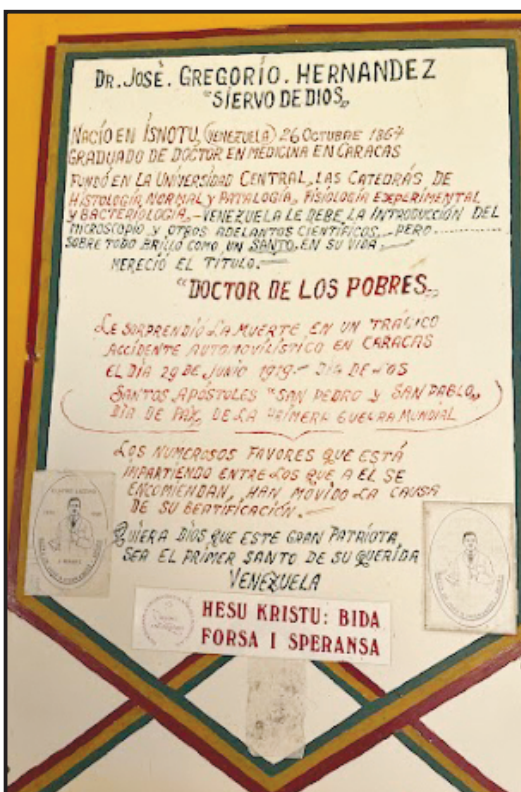 DR. JOSÈ. GREGORIO. HERNANDEZ
"SIERVO DE DIOS„
NACÍO EN ÍSNOTU, (VENEZUELA) 26 OCTUBRE 1864
GRADUADO DE DOCTOR EN MEDICINA EN CARACAS
FUNDÓ EN LA UNIVERSIDAD CENTRAL, LAS CATEDRÁS DE
HISTOLOGÍA NORMAL Y PATALOGÍA, FISIOLOGÍA EXPERIMENTAL
Y BACTERIOLOGÍA.- VENEZUELA LE DEBE LA INTRODUCCIÓN DEL
MICROSCOPIO Y OTROS ADELANTOS CIENTÍFICOS,- PERO..........
SOBRE TODO BRILLO COMO UN SANTO, EN SU VIDA,
MERECIÓ EL TITULO.-
"DOCTOR DE LOS POBRES„
LE SORPRENDIÓ LA MUERTE, EN UN TRÁGICO
ACCIDENTE AUTOMOVILÍSTICO EN CARACAS
EL DÍA 29 DE JUNIO 1919.- DÍA DE LOS
SANTOS APÓSTOLES "SAN PEDRO Y SAN PABLO„
DÍA DE PAX, DE LA PRIMERA GUERRA MUNDIAL
LOS NUMEROSOS FAVORES QUE ESTÁ
IMPARTIENDO ENTRE LOS QUE A EL SE
ENCOMIENDAN, HAN MOVIDO LA CAUSA
DE SU BEATIFICACIÓN.-
QUIERA DIOS QUE ESTE GRAN PATRIOTA,
SEA EL PRIMER SANTO DE SU QUERIDA
VENEZUELA
HESU KRISTU: BIDA
FORSA I SPERANSA